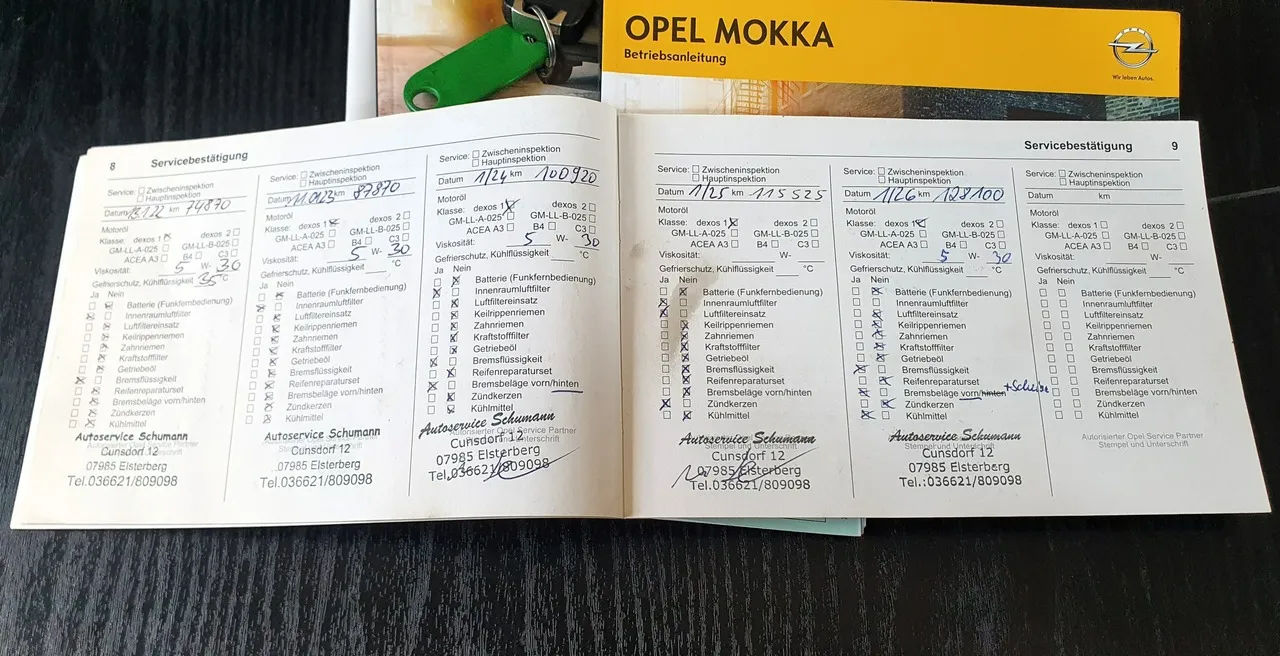 OPEL MOKKA
Betriebsanleitung
Wir leben Autos.
8 Servicebestätigung
Service: Zwischeninspektion
Hauptinspektion
Datum 13.1.22 km 74870
Motoröl
Klasse: dexos 1 dexos 2
GM-LL-A-025 GM-LL-B-025
ACEA A3 B4 C3
Viskosität: 5 W- 30
Gefrierschutz, Kühlflüssigkeit 35 °C
Ja Nein
Batterie (Funkfernbedienung)
Innenraumluftfilter
Luftfiltereinsatz
Keilrippenriemen
Zahnriemen
Kraftstofffilter
Getriebeöl
Bremsflüssigkeit
Reifenreparaturset
Bremsbeläge vorn/hinten
Zündkerzen
Kühlmittel
Autorisierter Opel Service Partner
Stempel und Unterschrift
Autoservice Schumann
Cunsdorf 12
07985 Elsterberg
Tel.036621/809098
Service: Zwischeninspektion
Hauptinspektion
Datum 11.01.23 km 87870
Motoröl
Klasse: dexos 1 dexos 2
GM-LL-A-025 GM-LL-B-025
ACEA A3 B4 C3
Viskosität: 5 W- 30
Gefrierschutz, Kühlflüssigkeit °C
Ja Nein
Batterie (Funkfernbedienung)
Innenraumluftfilter
Luftfiltereinsatz
Keilrippenriemen
Zahnriemen
Kraftstofffilter
Getriebeöl
Bremsflüssigkeit
Reifenreparaturset
Bremsbeläge vorn/hinten
Zündkerzen
Kühlmittel
Autorisierter Opel Service Partner
Stempel und Unterschrift
Autoservice Schumann
Cunsdorf 12
07985 Elsterberg
Tel.036621/809098
Service: Zwischeninspektion
Hauptinspektion
Datum 1/24 km 100920
Motoröl
Klasse: dexos 1 dexos 2
GM-LL-A-025 GM-LL-B-025
ACEA A3 B4 C3
Viskosität: 5 W- 30
Gefrierschutz, Kühlflüssigkeit °C
Ja Nein
Batterie (Funkfernbedienung)
Innenraumluftfilter
Luftfiltereinsatz
Keilrippenriemen
Zahnriemen
Kraftstofffilter
Getriebeöl
Bremsflüssigkeit
Reifenreparaturset
Bremsbeläge vorn/hinten
Zündkerzen
Kühlmittel
Autorisierter Opel Service Partner
Stempel und Unterschrift
Autoservice Schumann
Cunsdorf 12
07985 Elsterberg
Tel.036621/809098
Servicebestätigung 9
Service: Zwischeninspektion
Hauptinspektion
Datum 1/25 km 115525
Motoröl
Klasse: dexos 1 dexos 2
GM-LL-A-025 GM-LL-B-025
ACEA A3 B4 C3
Viskosität: W-
Gefrierschutz, Kühlflüssigkeit °C
Ja Nein
Batterie (Funkfernbedienung)
Innenraumluftfilter
Luftfiltereinsatz
Keilrippenriemen
Zahnriemen
Kraftstofffilter
Getriebeöl
Bremsflüssigkeit
Reifenreparaturset
Bremsbeläge vorn/hinten
Zündkerzen
Kühlmittel
Autorisierter Opel Service Partner
Stempel und Unterschrift
Autoservice Schumann
Cunsdorf 12
07985 Elsterberg
Tel.036621/809098
Service: Zwischeninspektion
Hauptinspektion
Datum 1/26 km 128100
Motoröl
Klasse: dexos 1 dexos 2
GM-LL-A-025 GM-LL-B-025
ACEA A3 B4 C3
Viskosität: 5 W- 30
Gefrierschutz, Kühlflüssigkeit °C
Ja Nein
Batterie (Funkfernbedienung)
Innenraumluftfilter
Luftfiltereinsatz
Keilrippenriemen
Zahnriemen
Kraftstofffilter
Getriebeöl
Bremsflüssigkeit
Reifenreparaturset
Bremsbeläge vorn/hinten
Zündkerzen
Kühlmittel
Autorisierter Opel Service Partner
Stempel und Unterschrift
Autoservice Schumann
Cunsdorf 12
07985 Elsterberg
Tel.:036621/809098
Service: Zwischeninspektion
Hauptinspektion
Datum km
Motoröl
Klasse: dexos 1 dexos 2
GM-LL-A-025 GM-LL-B-025
ACEA A3 B4 C3
Viskosität: W-
Gefrierschutz, Kühlflüssigkeit °C
Ja Nein
Batterie (Funkfernbedienung)
Innenraumluftfilter
Luftfiltereinsatz
Keilrippenriemen
Zahnriemen
Kraftstofffilter
Getriebeöl
Bremsflüssigkeit
Reifenreparaturset
Bremsbeläge vorn/hinten
Zündkerzen
Kühlmittel
Autorisierter Opel Service Partner
Stempel und Unterschrift